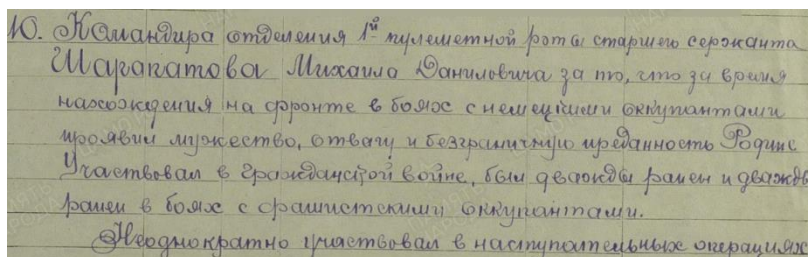 10. Командира отделения 1й пулеметной роты старшего сержанта
Шарапатова Михаила Даниловича за то, что за время
нахождения на фронте в боях с немецкими оккупантами
проявил мужество, отвагу и безграничную преданность Родине
Участвовал в гражданской войне, был дважды ранен и дважды
ранен в боях с фашистскими оккупантами.
Неоднократно участвовал в наступательных операциях